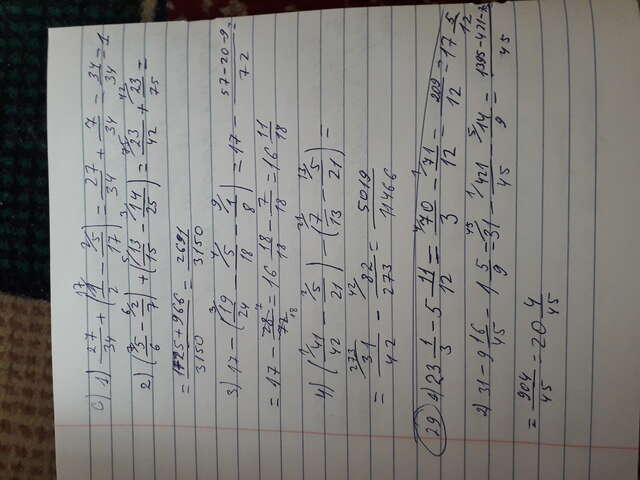 c) 1) 27/34 + (¹⁷1/2 - ²5/17) = 27/34 + 7/34 = 34/34 = 1
2) (⁷5/6 - ⁶2/7) + (⁵13/15 - ³14/25) = ⁷⁵23/42 + ⁴²23/75 =
= 1725+966/3150 = 2691/3150
3) 17 - (³19/24 - ⁴5/18 - ⁹1/8) = 17 - 57-20-9/72 =
= 17 - 28 ⁷/72 ₁₈ = 16 18/18 - 7/18 = 16 11/18
4) (¹41/42 - ²5/21) - (²¹7/13 - ¹³5/21) =
= ²⁷³31/42 - ⁴²82/273 = 5019/11466
29 1) 23 1/3 - 5 11/12 = ⁴70/3 - ¹71/12 = 209/12 = 17 5/12
2) 31 - 9 16/45 - 1 5/9 = ⁴⁵31 - ¹421/45 - ⁵14/9 = 1395-421-/45
= 904/45 = 20 4/45